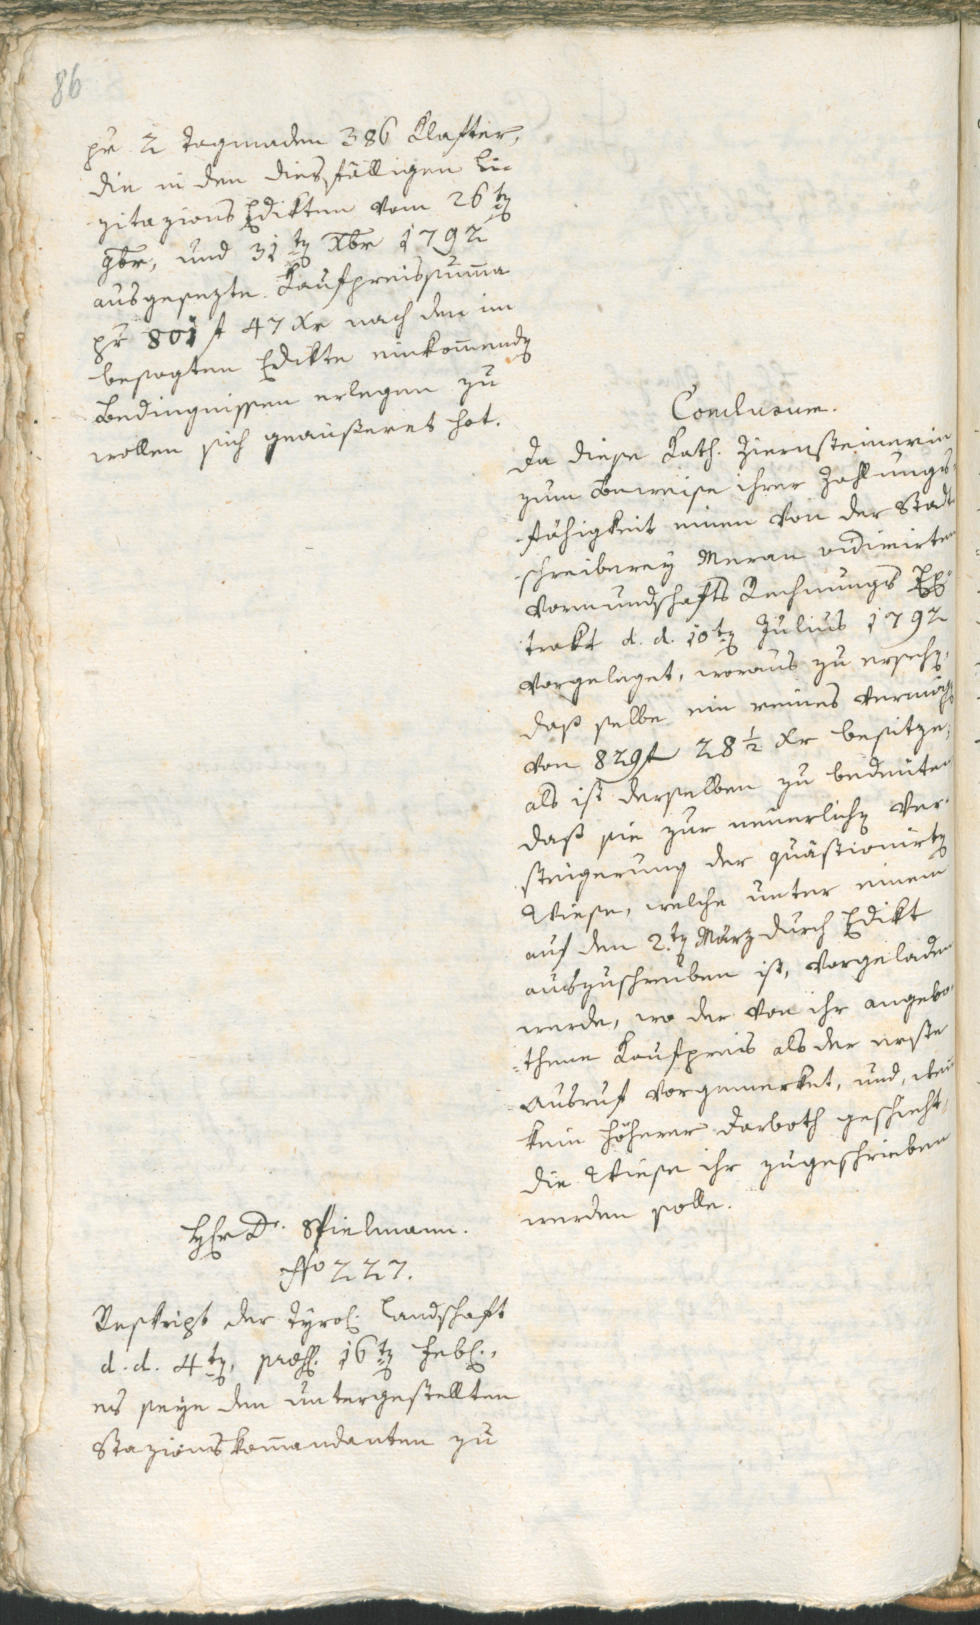 86
pr 2 Tagmaden 386 Klafter,
die in den diesfälligen Li-
zitazions Edikten vom 26ten
9br, und 31ten Xbr 1792
ausgesezte Kaufpreissuma
pr 801 f 47 Xr nach den im
besagten Edikte einkomenden
Bedingnissen erlegen zu
wollen sich geäusseret hat.
Conclusum.
Da diese Kath. Ziernsteinerin
zum Beweise ihrer Zahlungs-
fähigkeit einen von der Stadt
schreiberey Meran vidimirten
Vormundschafts Rechnungs Ex-
trakt d. d. 10ten Julius 1792
vorgeleget, woraus zu ersehen,
daß selbe ein reines Vermögen
von 829 f 28 1/2 Xr besitze,
als ist derselben zu bedeuten
daß sie zur neuerlichen Ver-
steigerung der quästionirten
Wiese, welche unter einem
auf den 2.ten März durch Edikt
auszuschreiben ist, vorgeladen
werde, wo der von ihr angebo-
thene Kaufpreis als der erste
Ausruf vorgemerket, und, wenn
kein höherer Darboth geschieht,
die Wiese ihr zugeschrieben
werden solle.
Hr Dr. Spielmann.
No 227.
Reskript der Tyrol. Landschaft
d. d. 4ten, præs. 16ten Febr.,
es seye den untergestellten
Stazionskomandanten zu